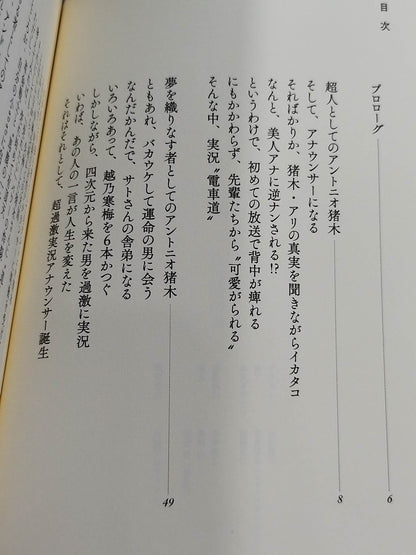 目次
プロローグ 6
超人としてのアントニオ猪木 8
そして、アナウンサーになる
そればかりか、猪木・アリの真実を聞きながらイカタコ
なんと、美人アナに逆ナンされる!?
というわけで、初めての放送で背中が痺れる
にもかかわらず、先輩たちから〝可愛がられる〟
そんな中、実況〝電車道〟
夢を織りなす者としてのアントニオ猪木 49
ともあれ、バカウケして運命の男に会う
なんだかんだで、サトさんの舎弟になる
いろいろあって、越乃寒梅を6本かつぐ
しかしながら、四次元から来た男を過激に実況
いわば、あの人の一言が人生を変えた
それはそれとして、超過激実況アナウンサー誕生